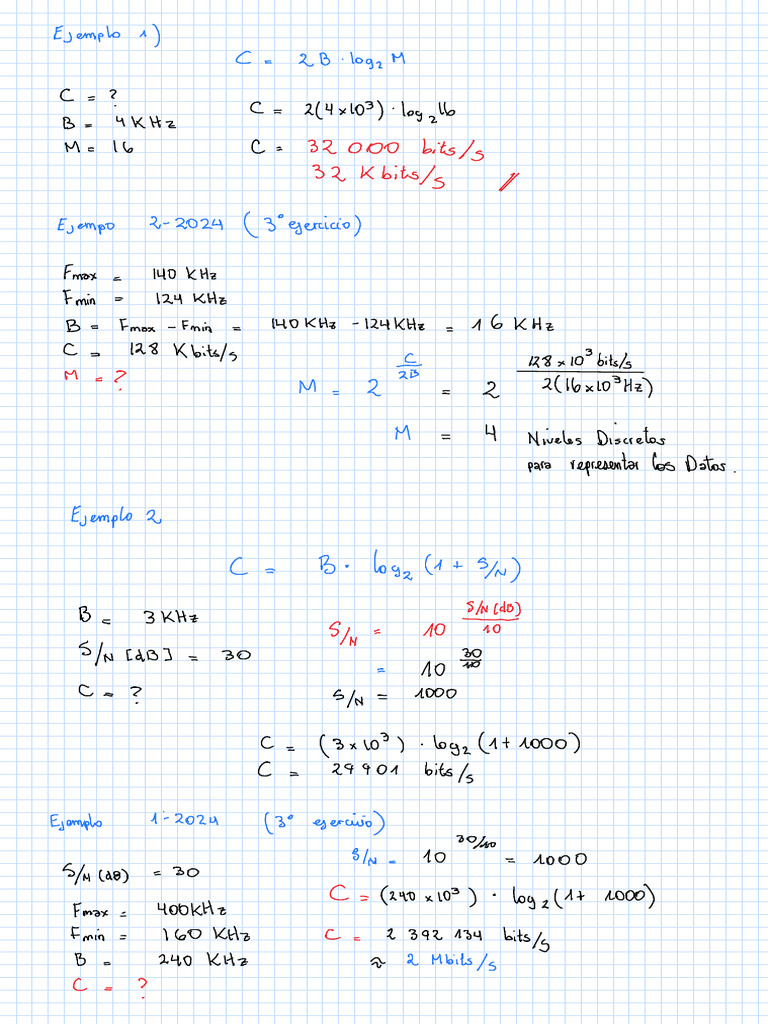 Ejemplo 1)
C = 2B · log₂ M
C = ?
B = 4 KHz
M = 16
C = 2(4×10³) · log₂ 16
C = 32 000 bits/s
32 Kbits/s
Ejempo 2-2024 (3° ejercicio)
Fmax = 140 KHz
Fmin = 124 KHz
B = Fmax - Fmin = 140 KHz - 124 KHz = 16 KHz
C = 128 Kbits/s
M = ?
M = 2^(C/2B) = 2^(128×10³ bits/s / 2(16×10³Hz))
M = 4 Niveles Discretos
para representar los Datos.
Ejemplo 2
C = B · log₂ (1 + S/N)
B = 3 KHz
S/N [dB] = 30
C = ?
S/N = 10^(S/N [dB]/10)
= 10^(30/10)
S/N = 1000
C = (3×10³) · log₂ (1+ 1000)
C = 29901 bits/s
Ejemplo 1-2024 (3° ejercicio)
S/N (dB) = 30
Fmax = 400KHz
Fmin = 160 KHz
B = 240 KHz
C = ?
S/N = 10^(30/10) = 1000
C = (240 ×10³) · log₂ (1+ 1000)
C = 2 392 134 bits/s
≈ 2 Mbits/s